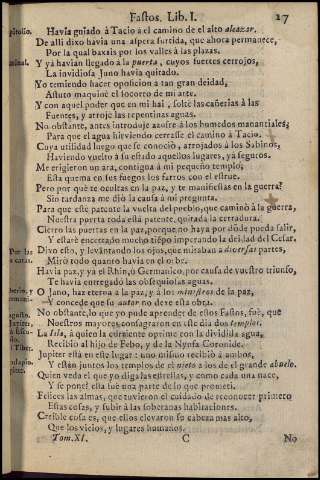 Fastos. Lib. I. 27
Havia guiado à Tacio a el camino de el alto alcazar.
De alli dixo havia una aspera surtida, que ahora permanece,
Por la qual baxais por los valles à las plazas.
Y yà havian llegado à la puerta, cuyos fuertes cerrojos,
La invidiosa Juno havia quitado.
Yo temiendo hacer oposicion à tan gran deidad,
Astuto maquinè el socorro de mi arte.
Y con aquel poder que en mi hai, soltè las cañerias à las
Fuentes, y arrojè las repentinas aguas.
No obstante, antes introduje azufre à los humedos manantiales,
Para que el agua hirviendo cerrasse el camino à Tacio.
Cuya utilidad luego que se conoció, arrojados à los Sabinos,
Haviendo vuelto à su estado aquellos lugares, yà seguros.
Me erigieron un ara, contigua à mi pequeño templo;
Esta quema en sus fuegos los farros con el estrue.
Pero por què te ocultas en la paz, y te manifiestas en la guerra?
Sin tardanza me diò la causa à mi pregunta.
Para que estè patente la vuelta del pueblo, que caminò à la guerra,
Nuestra puerta toda està patente, quitada la cerradura.
Cierro las puertas en la paz, porque no haya por dònde pueda salir,
Y estarè encerrado mucho tiẽpo imperando la deidad del Cesar.
Divo esto, y levantando los ojos, que miraban a diversas partes,
Mirò todo quanto havia en el orbe.
Havia paz, y yà el Rhin, ò Germanico, por causa de vuestro triunfo,
Te havia entregado las obsequiosas aguas.
O Jano, haz eterna à la paz, y à los ministros de la paz,
Y concede que su autor no deve esta obra.
No obstante, lo que yo pude aprender de estos Fastos, fuè, que
Nuestros mayores consagraron en este dia dos templos.
La Isla, à quien la corriente oprime con la dividida agua,
Recibiò al hijo de Febo, y de la Nynfa Coronide.
Jupiter està en este lugar: uno mismo recibió à ambos,
Y estàn juntos los templos de el nieto à los de el grande abuelo.
Quien veda el que yo diga las estrellas, y como cada una nace,
Y se pone? esta fuè una parte de lo que prometì.
Felices las almas, que tuvieron el cuidado de reconocer primero
Essas cosas, y subir à las soberanas habitaciones.
Creible cosa es, que ellos elevaron su cabeza mas alto,
Que los vicios, y lugares humanos.
Tom. XI. C No